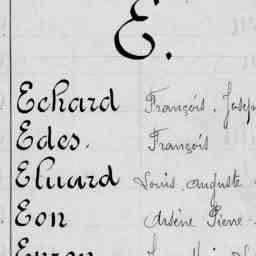 E.
Echard François, Joseph
Edes. François
Eluard Louis, Auguste
Eon Arsène Pierre